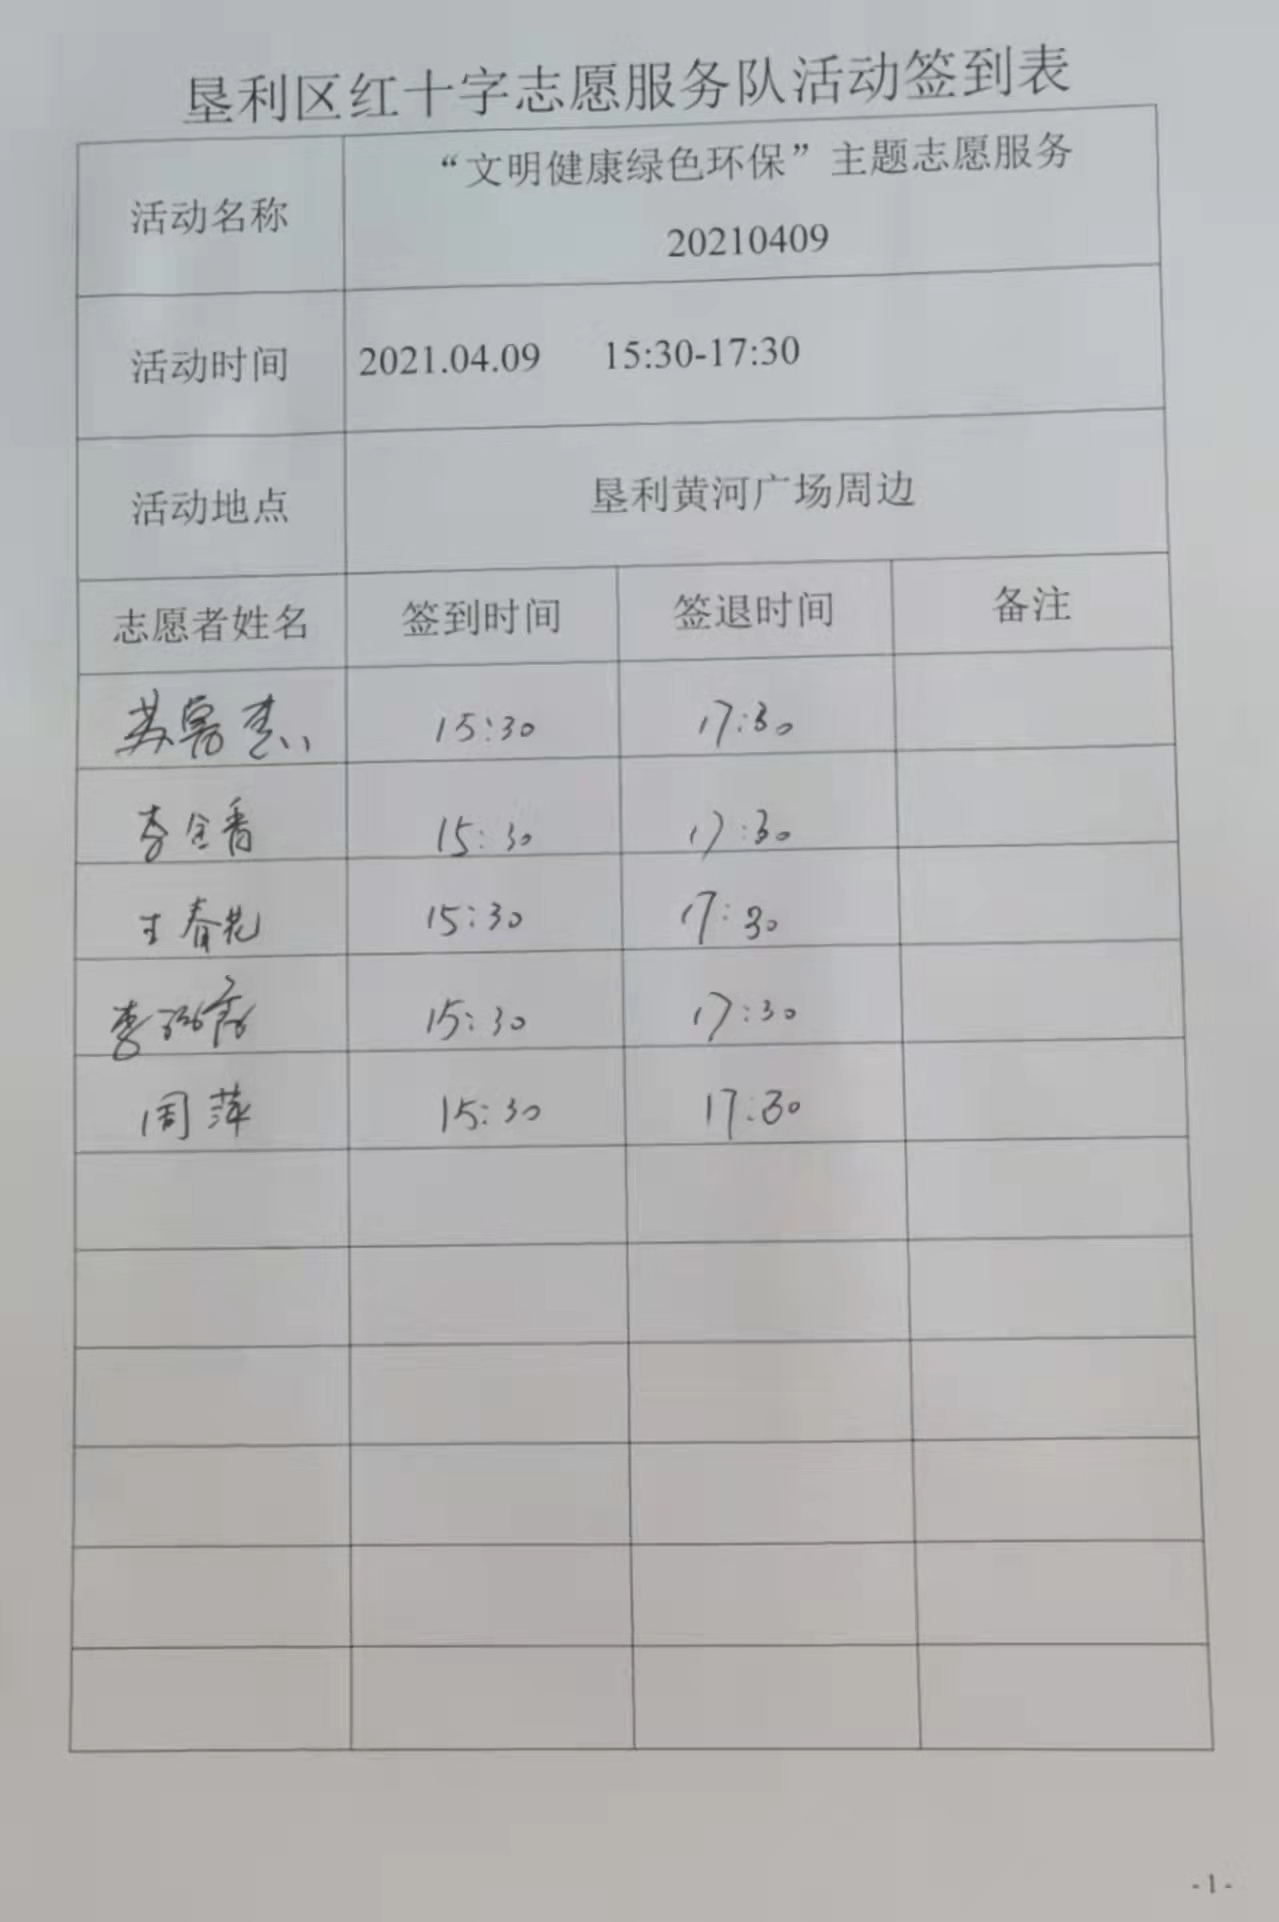 垦利区红十字志愿服务队活动签到表
活动名称
“文明健康绿色环保”主题志愿服务
20210409
活动时间
2021.04.09 15:30-17:30
活动地点
垦利黄河广场周边
志愿者姓名 签到时间 签退时间 备注
苏 15:30 17:30
李全香 15:30 17:30
王春花 15:30 17:30
李 15:30 17:30
周萍 15:30 17:30
-1-